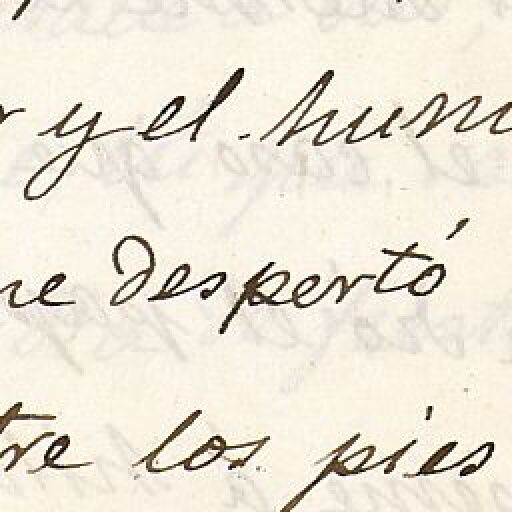 y el hum
me despertó
tre los pies